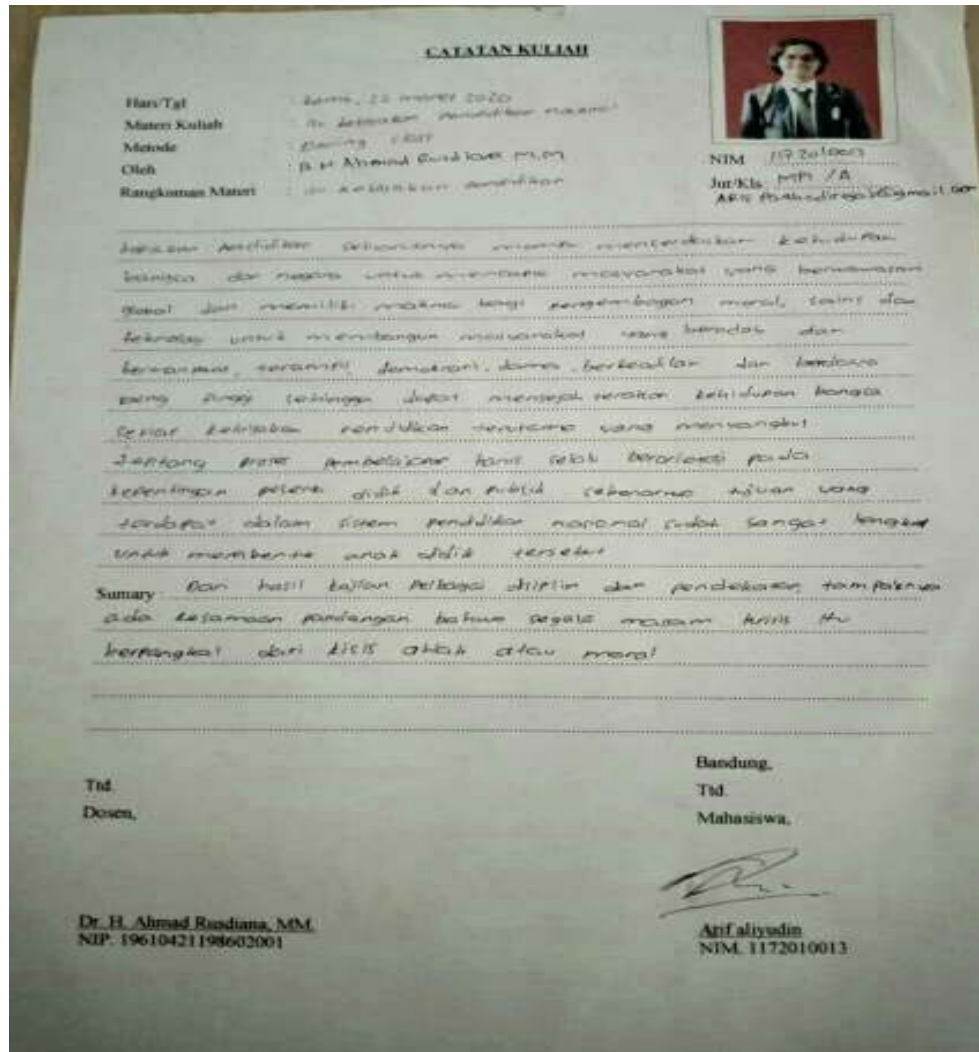 CATATAN KULIAH
Hari/Tgl : kamis, 26 maret 2020
Materi Kuliah : kebijakan Pendidikan nasional
Metode : Daring
Oleh : D.H Ahmad Rusdiana M.M
Rangkuman Materi : kebijakan pendidikan
NIM 1172010013
Jur/Kls MPI /A
@gmail.com
Pendidikan seharusnya mampu mencerdaskan kehidupan
bangsa dan negara untuk mencapai masyarakat yang berwawasan
global dan memiliki makna bagi pengembagan moral, sains dan
teknologi untuk membangun masyarakat yang beradab dan
terampil, demokrasi, damai, berkeadilan dan berdaya
saing tinggi sehingga dapat mensejahterakan kehidupan bangsa
Setiap kebijakan pendidikan terutama yang menyangkut
tentang proses pembelajaran harus selalu berorientasi pada
kepentingan peserta didik dan publik sebenarnya tujuan yang
terdapat dalam sistem pendidikan nasional sudah sangat lengkap
untuk membentuk anak didik tersebut
Sumary Dari hasil kajian berbagai disiplin dan pendekatan, tampaknya
ada kesamaan pandangan bahwa segala macam krisis itu
berpangkal dari krisis akhlak atau moral
Bandung,
Ttd. Ttd.
Dosen, Mahasiswa,
Dr. H. Ahmad Rusdiana, MM. Arif aliyudin
NIP. 19610421198602001 NIM. 1172010013